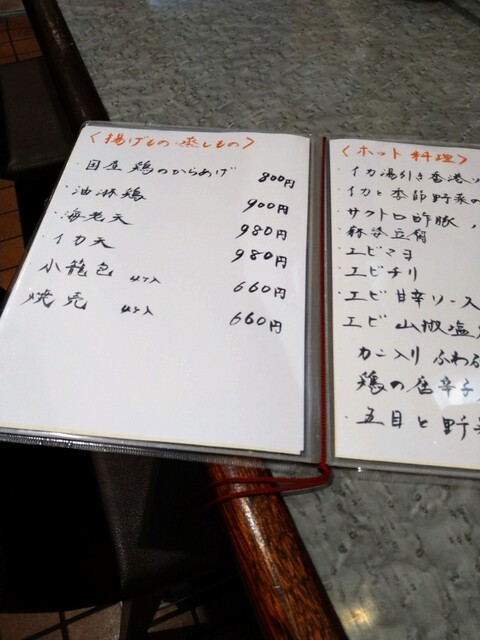 〈揚げもの 蒸しもの〉
・国産 鶏のからあげ 800円
・油淋鶏 900円
・海老天 980円
・イカ天 980円
小籠包 4ケ入 660円
焼売 4ケ入 660円
〈ホット 料理〉
・イカ湯引き香港ソ
・イカと季節野菜の
・サクトロ酢豚
・麻婆豆腐
・エビマヨ
・エビチリ
・エビ 甘辛ソース
エビ 山椒塩
カニ入り ふわふ
鶏の唐辛子
・五目と野菜